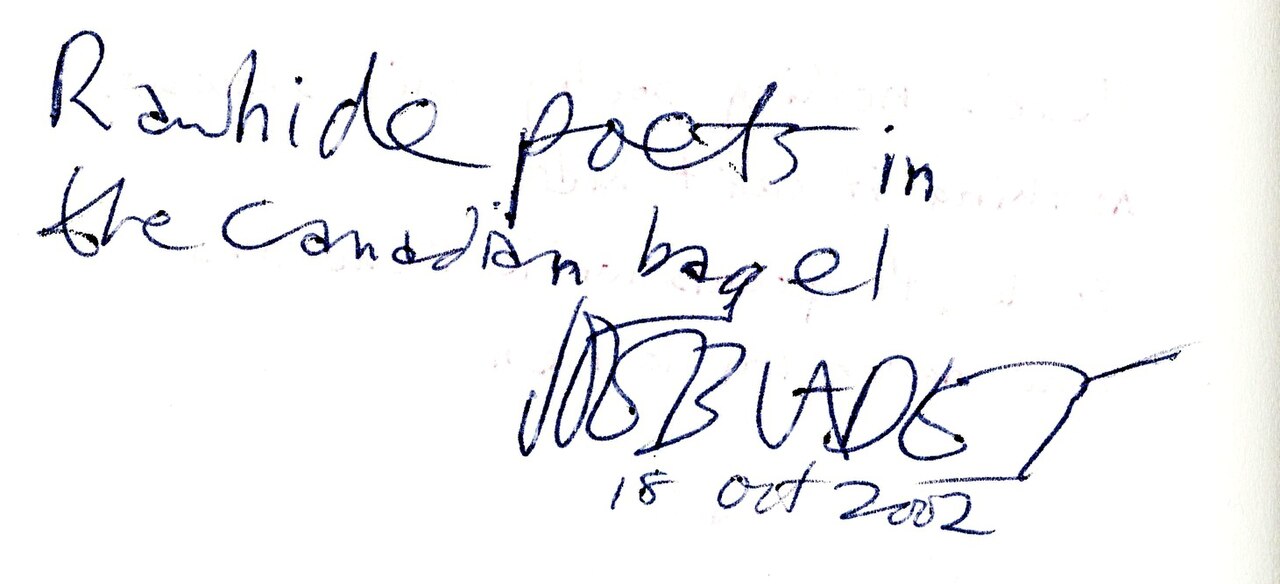 Rawhide poets in
the canadian bagel
18 oct 2002